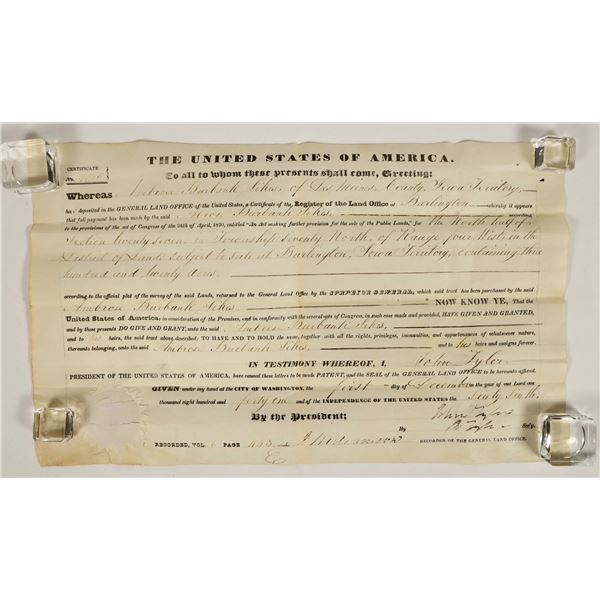 THE UNITED STATES OF AMERICA.
CERTIFICATE
No.
To all to whom these presents shall come, Greeting:
Whereas Ambrose Burbank Sikes, of Des Moines County, Iowa Territory,
ha deposited in the GENERAL LAND OFFICE of the United States, a Certificate of the Register of the Land Office at Burlington whereby it appears
that full payment has been made by the said Burbank Sikes, according
to the provisions of the act of Congress of the 24th of April, 1820, entitled "An Act making further provision for the sale of the Public Lands," for the North half of
Section twenty seven, in Township seventy North, of Range four West, in the
District of Lands subject to sale at Burlington, Iowa Territory, containing three
hundred and twenty acres.
according to the official plat of the survey of the said Lands, returned to the General Land Office by the SURVEYOR GENERAL, which said tract has been purchased by the said
Ambrose Burbank Sikes, NOW KNOW YE, That the
United States of America, in consideration of the Premises, and in conformity with the several acts of Congress, in such case made and provided, HAVE GIVEN AND GRANTED,
and by these presents DO GIVE AND GRANT, unto the said Ambrose Burbank Sikes,
and to his heirs, the said tract above described: TO HAVE AND TO HOLD the same, together with all the rights, privileges, immunities, and appurtenances of whatsoever nature,
thereunto belonging, unto the said Ambrose Burbank Sikes, and to his heirs and assigns forever.
IN TESTIMONY WHEREOF, I, John Tyler
PRESIDENT OF THE UNITED STATES OF AMERICA, have caused these letters to be made PATENT, and the SEAL of the GENERAL LAND OFFICE to be hereunto affixed.
GIVEN under my hand at the CITY OF WASHINGTON, the first day of December in the year of our Lord one
thousand eight hundred and forty one and of the INDEPENDENCE OF THE UNITED STATES the sixty sixth.
By the President: John Tyler
By R Tyler Sec'y.
RECORDED, VOL PAGE 443 J Williamson RECORDER OF THE GENERAL LAND OFFICE.